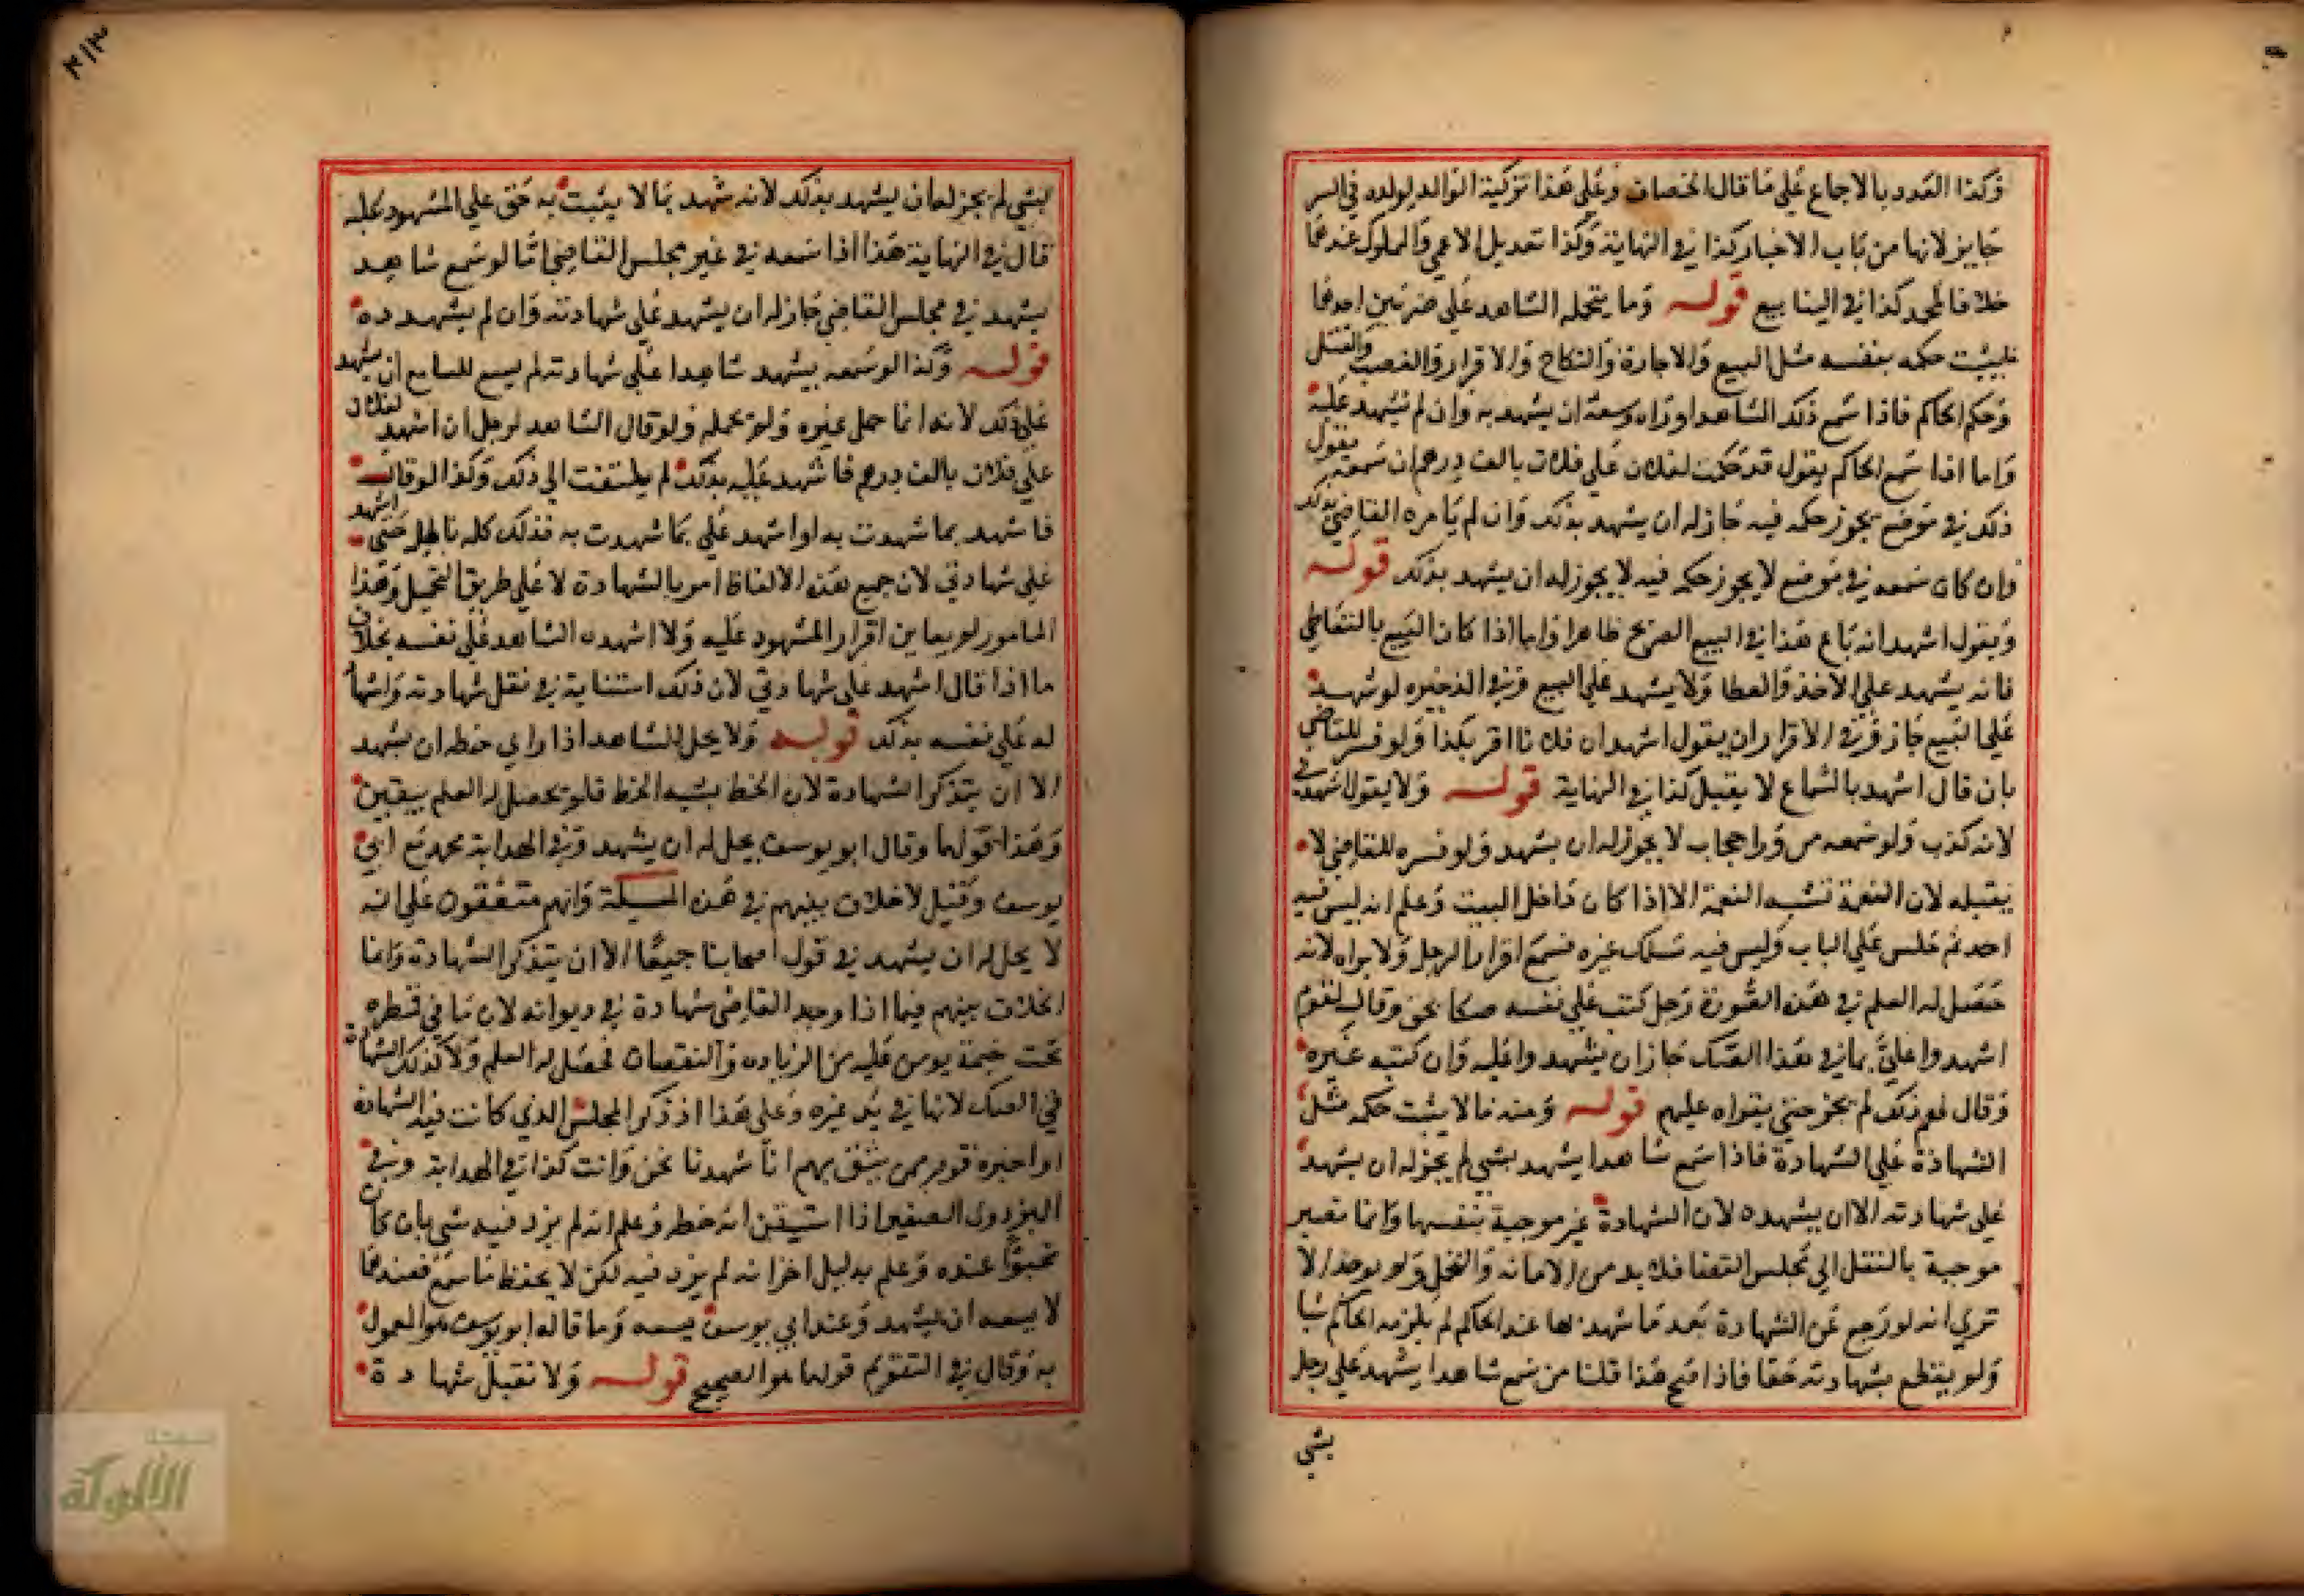 وكذا العدد بالاجماع علي ما قال الخصاف وعلي هذا تزكية الوالد لولده في السر
جايز لانها من باب الاخبار كذا في النهاية وكذا تعديل الاعمي والمملوك عندهما
خلافا لمحمد كذا في الينابيع قوله وما يتحمله الشاهد علي ضربين احدهما
يثبت حكمه بنفسه مثل البيع والاجارة والنكاح والاقرار والغصب والقتل
وحكم الحاكم فاذا سمع ذلك الشاهد او رآه وسعه ان يشهد به وان لم يشهد عليه
واما اذا سمع الحاكم يقول قد حكمت لفلان علي فلان بالف درهم ان سمعه يقول
ذلك في موضع يجوز حكمه فيه جاز له ان يشهد بذلك وان لم يامره القاضي بذلك
وان كان سمعه في موضع لا يجوز حكمه فيه لا يجوز له ان يشهد بذلك قوله
ويقول اشهد انه باع هذا في البيع الصريح ظاهرا واما اذا كان البيع بالتعاطي
فانه يشهد علي الاخذ والعطا ولا يشهد علي البيع وفي الذخيره لو شهد
علي البيع جاز وفي الاقرار ان يقول اشهد ان فلانا اقر بكذا ولو فسر للقاضي
بان قال اشهد بالسماع لا يقبل كذا في النهاية قوله ولا يقول اشهدني
لانه كذب ولو سمعه من ورا حجاب لا يجوز له ان يشهد ولو فسره للقاضي لا
يقبله لان النغمة تشبه النغمة الا اذا كان داخل البيت وعلم انه ليس فيه
احد ثم جلس علي الباب وليس فيه مسلك غيره فسمع اقرار الرجل ولا يراه لانه
حصل له العلم في هذه الصورة رجل كتب علي نفسه صكا بحق وقال لقوم
اشهدوا علي بما في هذا الصك جاز ان يشهدوا عليه وان كتبه غيره
وقال لهم ذلك لم يجز حتي يقراه عليهم قوله ومنه ما لا يثبت حكمه مثل
الشهادة علي الشهادة فاذا سمع شاهدا يشهد بشي لم يجز له ان يشهد
علي شهادته الا ان يشهده لان الشهادة غير موجبة بنفسها وانما تصير
موجبة بالنقل الي مجلس القضا فلا بد من الامانه والتحمل ولم يوجد الا
تري انه لو رجع عن الشهادة بعد ما شهد بها عند الحاكم لم يلزمه الحاكم شيا
ولم يقطع بشهادته حقا فاذا صح هذا قلنا من سمع شاهدا يشهد علي رجل
بشي
بشي لم يجز له ان يشهد بذلك لانه شهد بما لا يثبت به حق علي المشهود عليه
قال في النهاية هذا اذا سمعه في غير مجلس القاضي اما لو سمع شاهد
يشهد في مجلس القاضي جاز له ان يشهد علي شهادته وان لم يشهده
قوله وكذا لو سمعه يشهد شاهدا علي شهادته لم يسع للسامع ان يشهد
علي ذلك لانه انما حمل غيره ولم يحمله ولو قال الشاهد لرجل ان اشهد لفلان
علي فلان بالف درهم فاشهد عليه بذلك لم يلتفت الي ذلك وكذا لو قال
فاشهد بما شهدت به او اشهد علي بما شهدت به فذلك كله باطل حتي اشهد
علي شهادتي لان جميع هذه الالفاظ امر بالشهادة لا علي طريق التحميل وهذا
المامور لم يعاين اقرار المشهود عليه ولا اشهده الشاهد علي نفسه بخلاف
ما اذا قال اشهد علي شهادتي لان ذلك استنابة في نقل شهادته واشها
له علي نفسه بذلك قوله ولا يحل للشاهد اذا راي خطه ان يشهد
الا ان يتذكر الشهادة لان الخط يشبه الخط فلم يحصل له العلم بيقين
وهذا قولهما وقال ابو يوسف يحل له ان يشهد وفي الهداية محمد مع ابي
يوسف وقيل لا خلاف بينهم في هذه المسيلة وانهم متفقون علي انه
لا يحل له ان يشهد في قول اصحابنا جميعا الا ان يتذكر الشهادة وانما
الخلاف بينهم فيما اذا وجد القاضي شهادة في ديوانه لان ما في قمطره
تحت ختمه يومن عليه من الزياده والنقصان فحصل له العلم ولا كذلك الشهادة
في الصك لانها في يد غيره وعلي هذا اذا ذكر المجلس الذي كانت فيه الشهادة
او اخبره قوم ممن يثق بهم انا شهدنا نحن وانت كذا في الهداية وفي
البزدوي الصغير اذا استيقن انه خطه وعلم انه لم يزد فيه شي بان كان
مخبوا عنده وعلم بدليل اخر انه لم يزد فيه لكن لا يحفظ ما سمع فعندهما
لا يسعه ان يشهد وعند ابي يوسف يسعه وما قاله ابو يوسف هو المعمول
به وقال في التقويم قولهما هو الصحيح قوله ولا تقبل شهادة
الألوكة